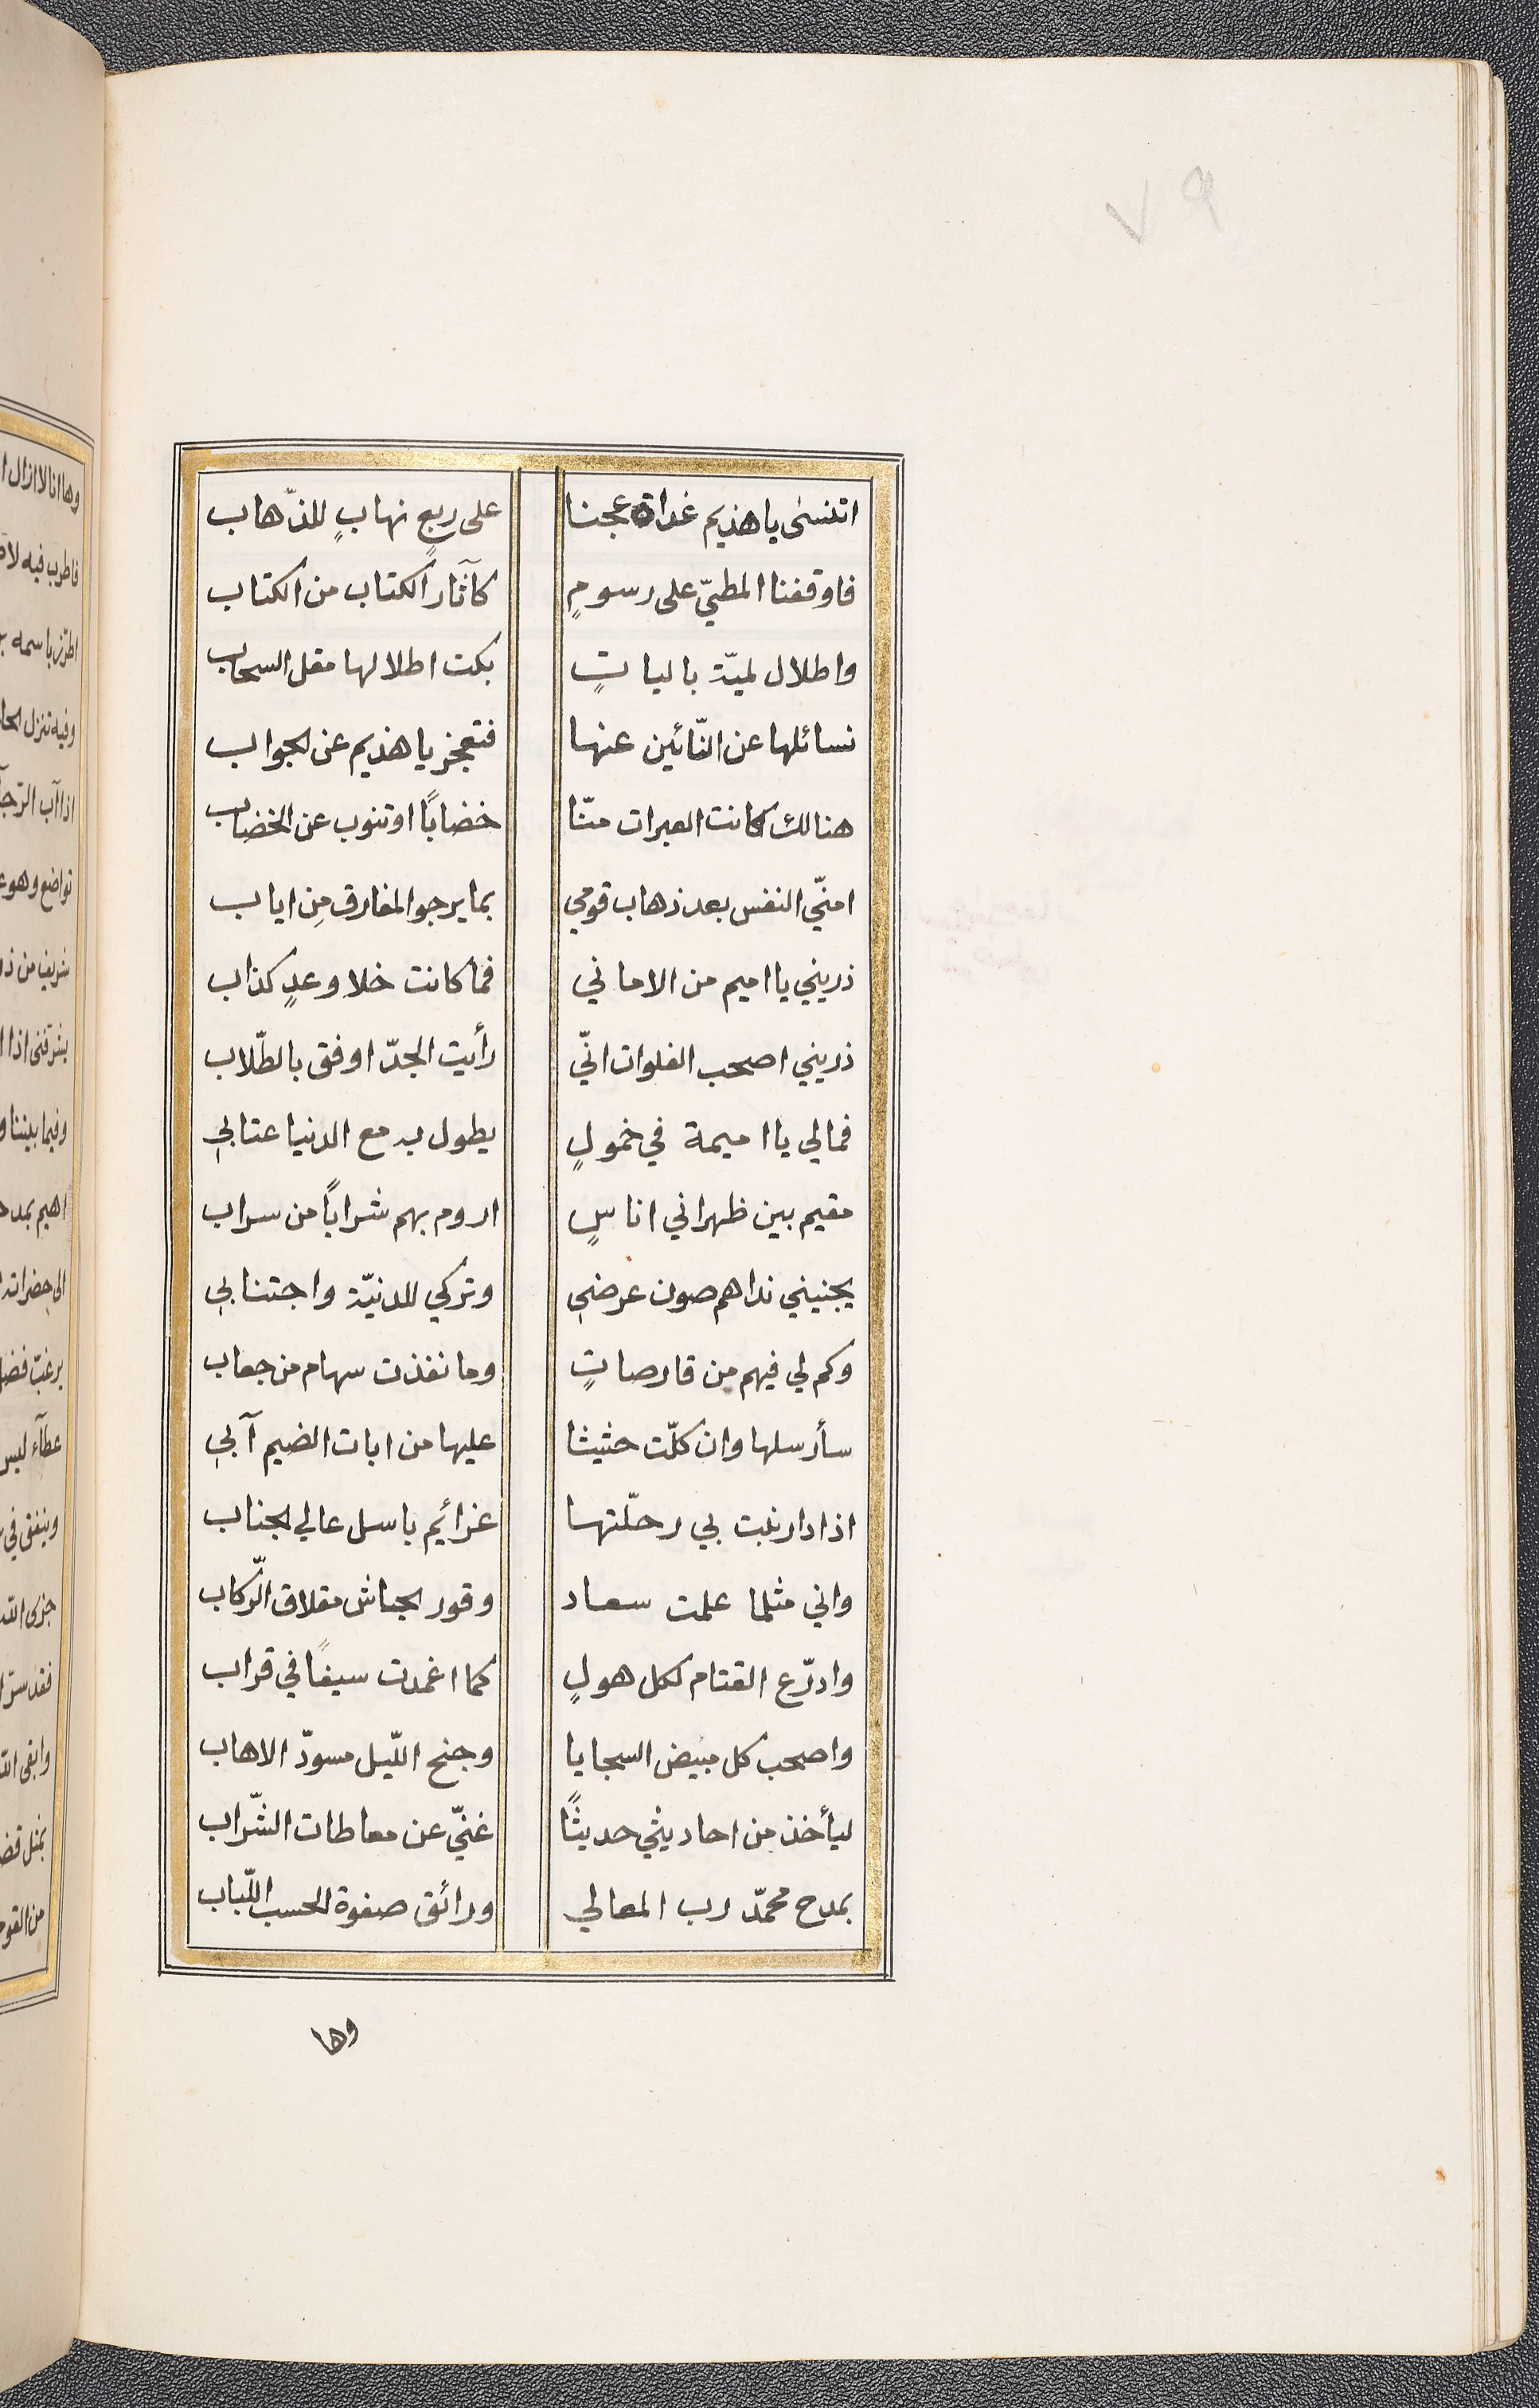 اتنسٰى ياهذيم غداة عجنا على ربعٍ نهابٍ للذّهاب
فاوقفنا المطيّ على رسومٍ كآثار الكتاب من الكتاب
واطلال لميّة بالياتٍ بكت اطلالها مقل السحاب
نسائلها عن النّائين عنها فتعجز ياهذيم عن الجواب
هنالك كانت العبرات منّا خضاباً اوتنوب عن الخضاب
امنّي النفس بعد ذهاب قومي بما يرجو المفارق مِن اياب
ذريني يا اميم من الاماني فما كانت خلا وعدٍ كذاب
ذريني اصحب الفلوات انّي رأيت الجدّ اوفق بالطّلاب
فمالي يا اميمة في خمولٍ يطول به مع الدنيا عتابي
مقيم بين ظهراني اناسٍ اروم بهم شراباً من سراب
يجنبني نداهم صون عرضي وتركي للدنيّة واجتنابي
وكم لي فيهم من قارصاتٍ وما نفذت سهام من جعاب
سأرسلها وان كلّت حثيثا عليها من ابات الضيم آبي
اذا دار نبت بي رحلّتها عزائم باسل عالي الجناب
واني مثلما علمت سعاد وقور الجاش مقلاق الرّكاب
وادرّع القتام لكل هولٍ كما اغمدت سيفاً في قراب
واصحب كل مبيض السجايا وجنح اللّيل مسودّ الاهاب
ليأخذ من احاديثي حديثًا غنيّ عن معاطات الشّراب
بمدح محمّد رب المعالي ورائق صفوة الحسب اللّباب
وها